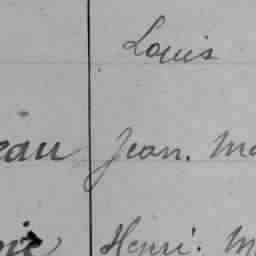 Louis
eau Jean. Ma
Henri. M